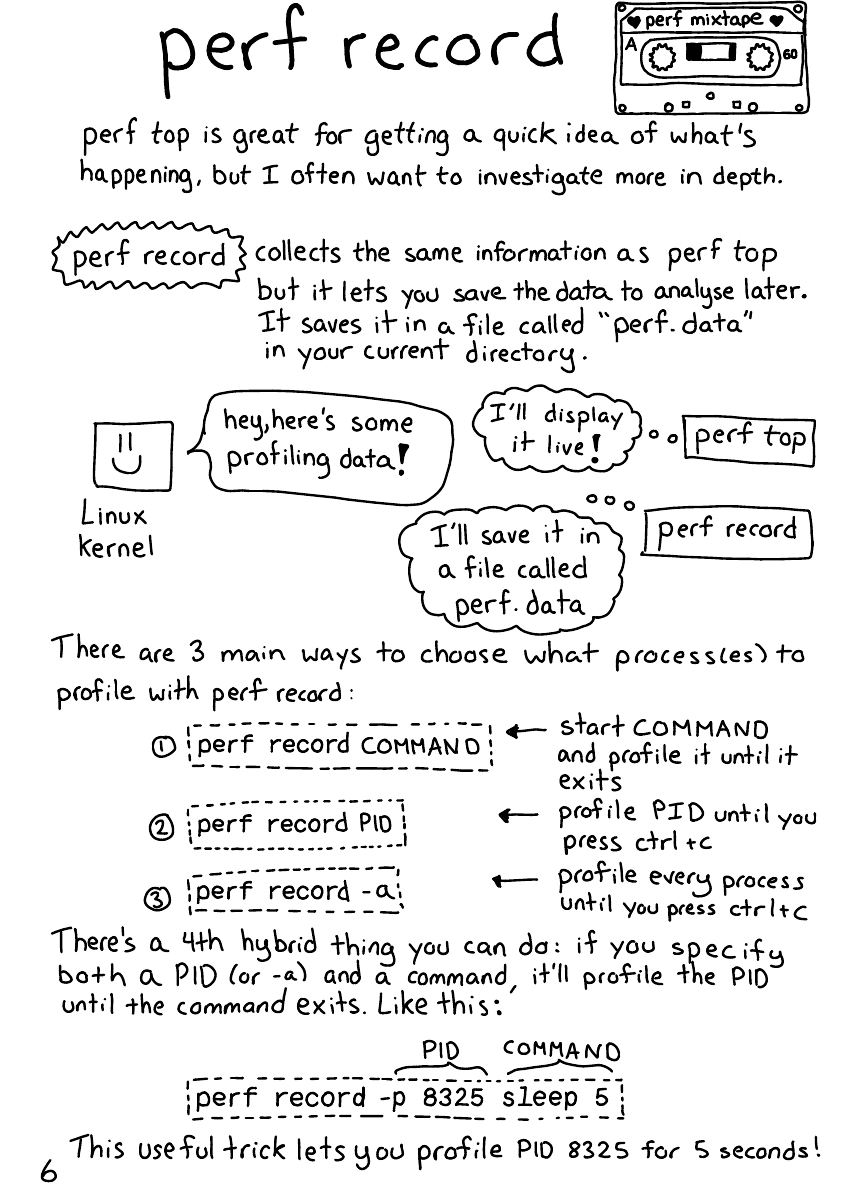 perf record
♥ perf mixtape ♥
A
60
perf top is great for getting a quick idea of what's
happening, but I often want to investigate more in depth.
perf record collects the same information as perf top
but it lets you save the data to analyse later.
It saves it in a file called "perf.data"
in your current directory.
hey, here's some
profiling data!
Linux
kernel
I'll display
it live!
perf top
I'll save it in
a file called
perf.data
perf record
There are 3 main ways to choose what process(es) to
profile with perf record:
① perf record COMMAND ← start COMMAND
and profile it until it
exits
② perf record PID ← profile PID until you
press ctrl+c
③ perf record -a ← profile every process
until you press ctrl+c
There's a 4th hybrid thing you can do: if you specify
both a PID (or -a) and a command, it'll profile the PID
until the command exits. Like this:
PID COMMAND
perf record -p 8325 sleep 5
This useful trick lets you profile PID 8325 for 5 seconds!
6